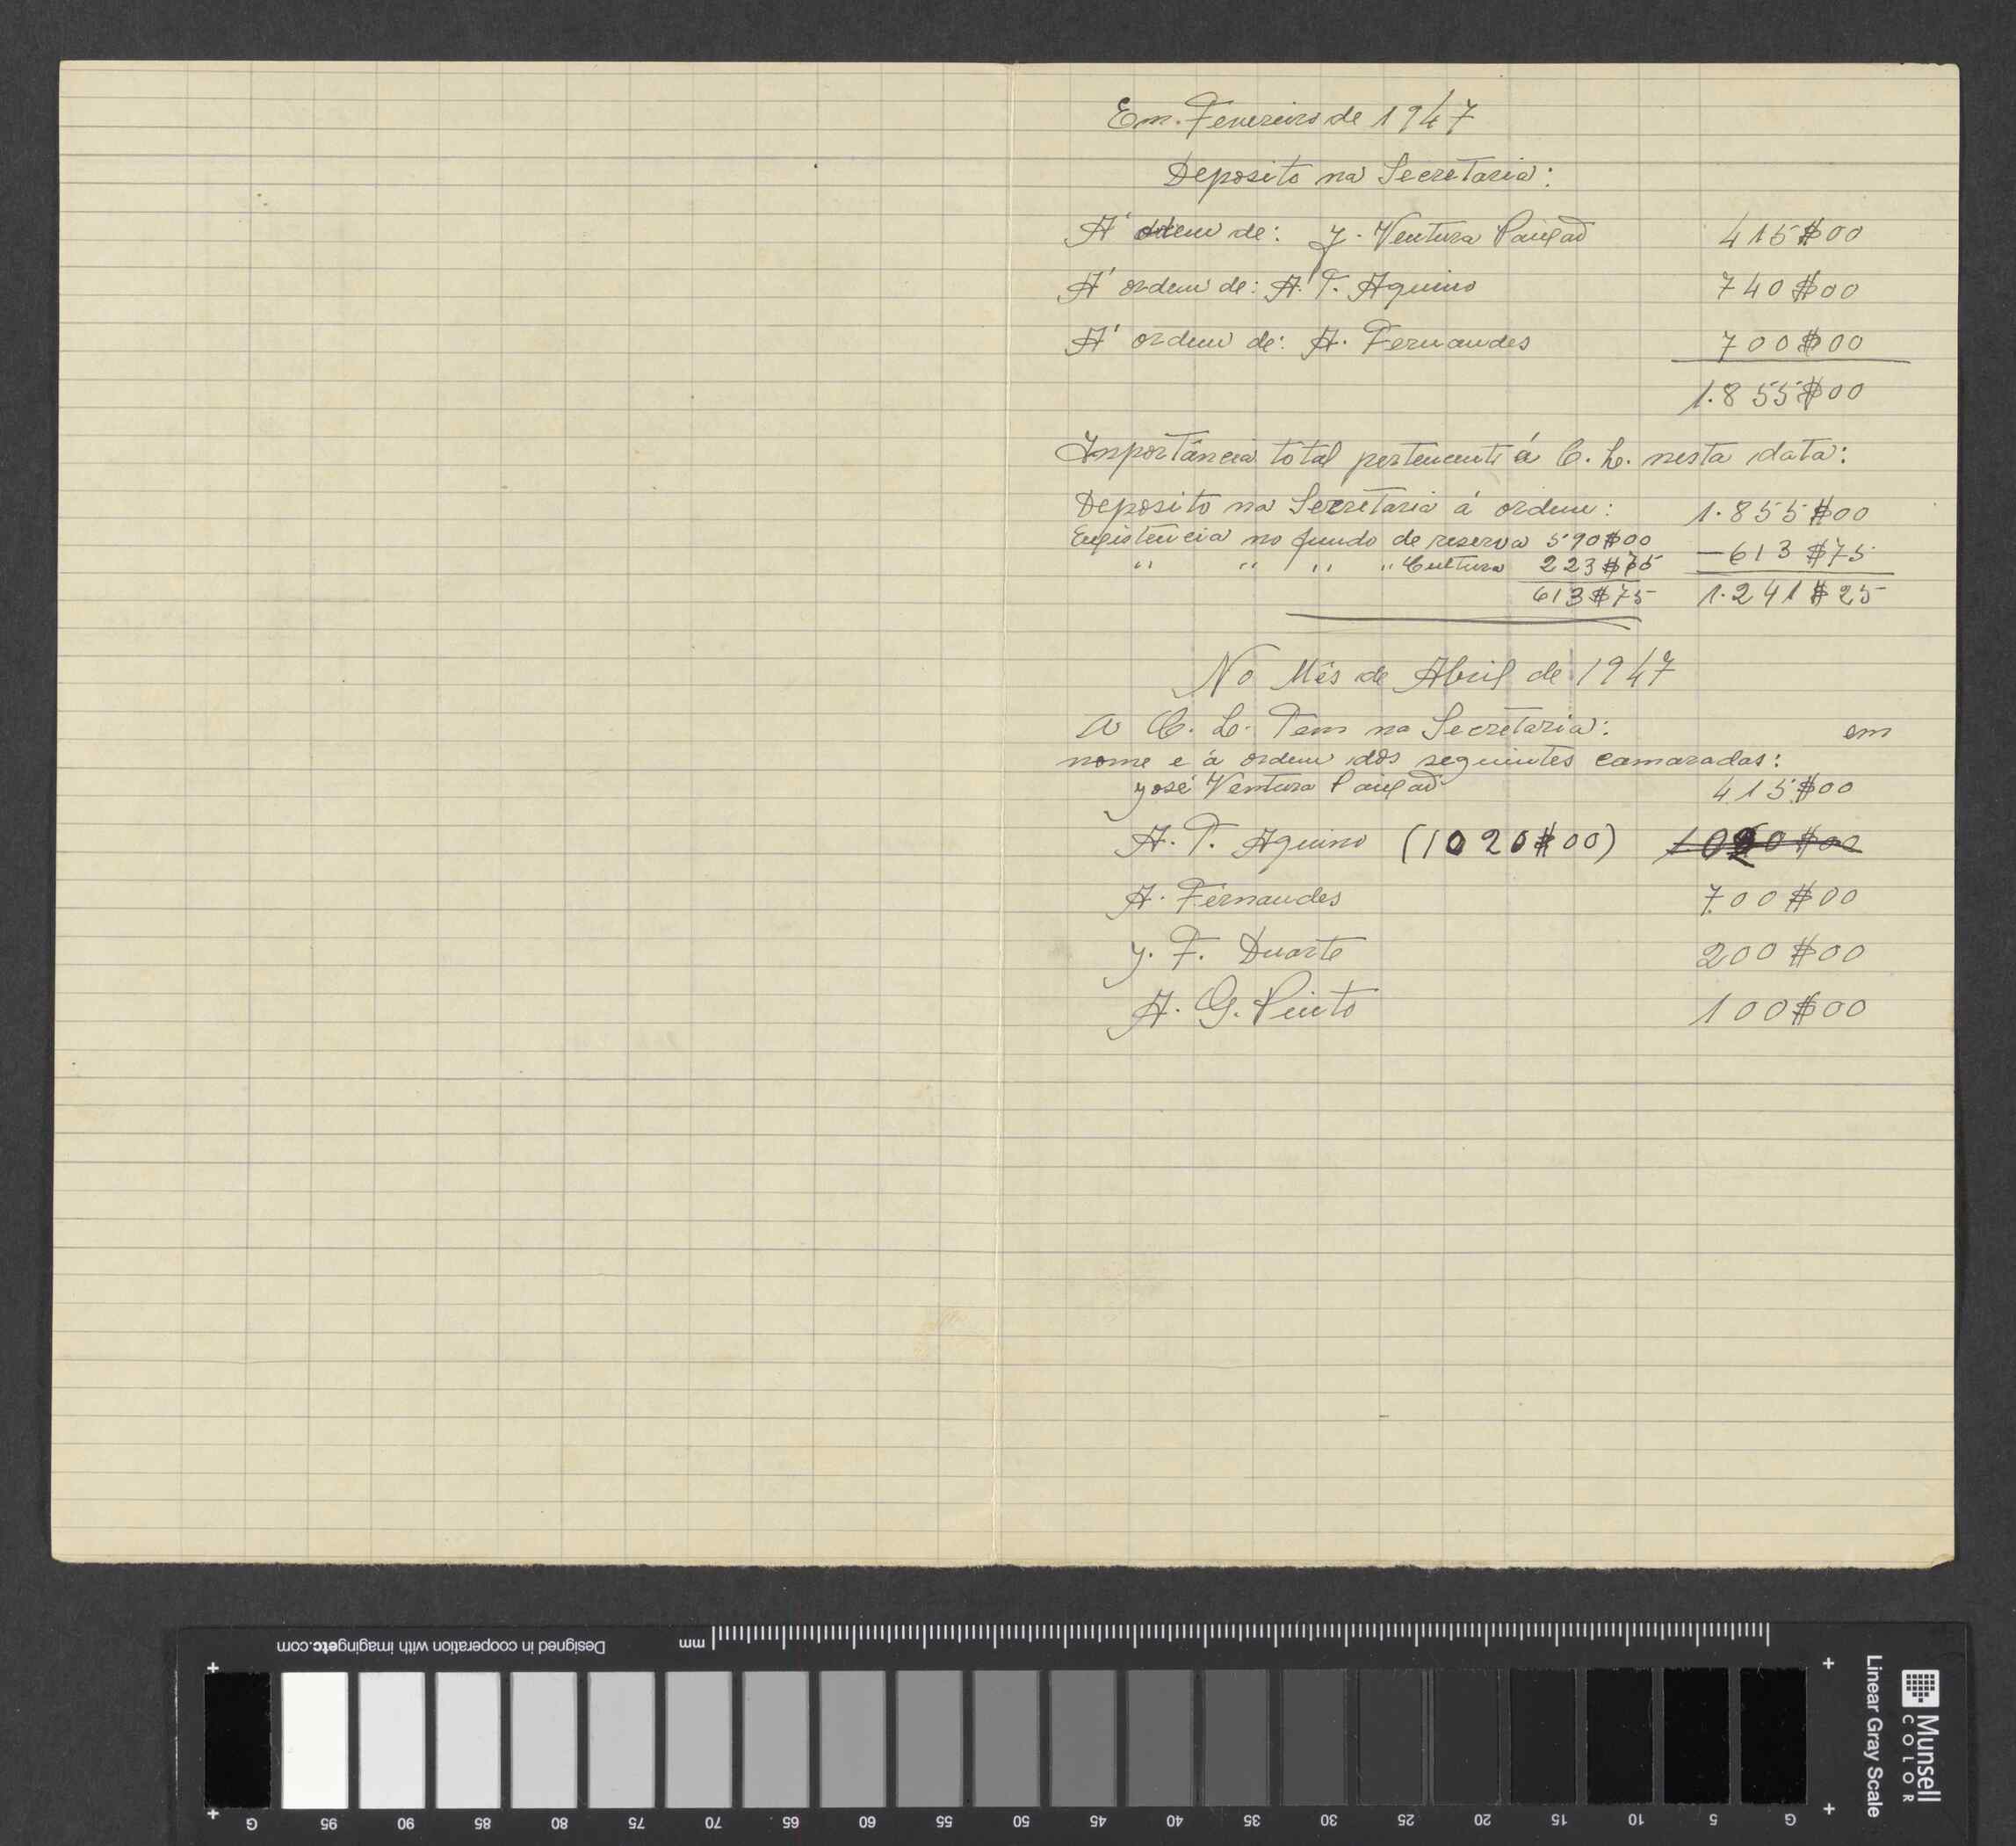 Em. Fevereiro de 1947
Deposito na Secretaria:
A' ordem de: J. Ventura Paixão 415$00
A' ordem de: A. T. Aquino 740$00
A' ordem de: A. Fernandes 700$00
1.855$00
Importância total pertencente á C. L. nesta data:
Deposito na Secretaria á ordem: 1.855$00
Existencia no fundo de reserva 590$00 —613$75
" " " " Cultura 223$75
613$75 1.241$25
No Mês de Abril de 1947
A C. L. Tem na Secretaria: em
nome e á ordem dos seguintes camaradas:
José Ventura Paixão 415$00
A. T. Aquino (1020$00) 1020$00
A. Fernandes 700$00
J. F. Duarte 200$00
A. G. Pinto 100$00
Designed in cooperation with imagingetc.com
mm
G 95 90 85 80 75 70 65 60 55 50 45 40 35 30 25 20 15 10 5 G
Linear Gray Scale
Munsell
COLOR